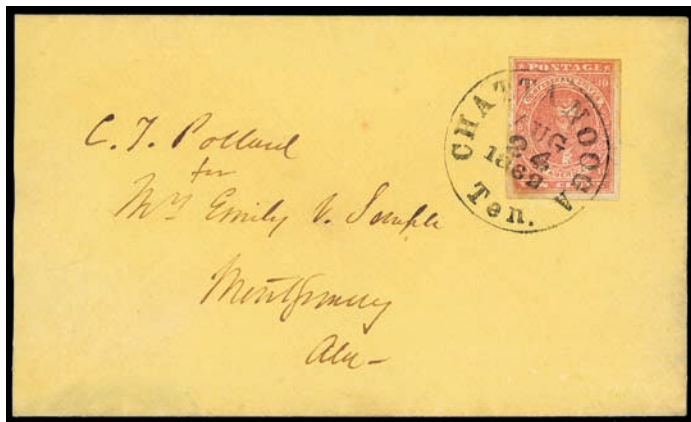 POSTAGE
CHATTANOOGA
AUG
24
1862
Ten.
C. T. Pollard
for
Mrs Emily V. Semple
Montgomery
Ala-